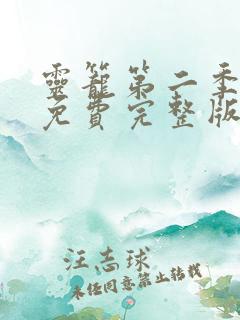 靈籠第二季
免費完整版
汪志球
未经同意禁止转载